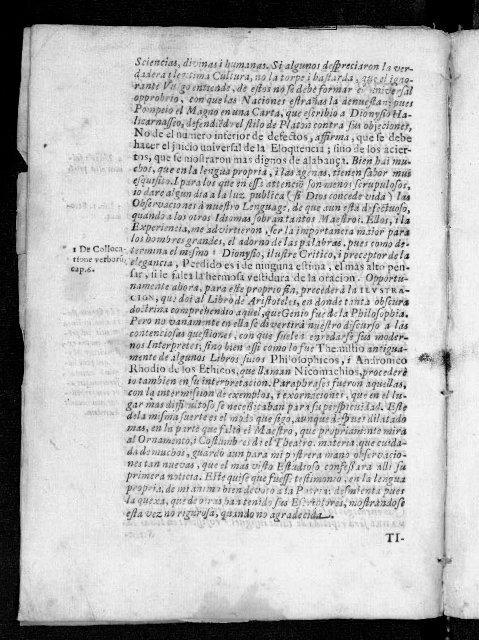 Sciencias, divinas i humanas. Si algunos despreciaron la ver-
dadera i legitima Cultura, no la torpe i bastarda, que el igno-
rante Vulgo entiende, de estos no se debe formar el universal
opprobrio, con que las Naciones estrañas la denuestan; pues
Pompeio el Magno en una Carta, que escribio a Dionysio Ha-
licarnasseo, defendiẽdo el stilo de Platon contra sus objeciones,
No de el numero inferior de defectos, affirma, que se debe
hacer el juicio universal de la Eloquencia; sino de los acier-
tos, que se mostraron mas dignos de alabança. Bien hai mu-
chos, que en la lengua propria, i las agenas, tienen sabor mui
esquisito. I para los que en essa attenciõ son menos scrupulosos,
io dare algun dia a la luz publica (si Dios concede vida) las
Observaciones à nuestro Lenguage, de que aun està defectuoso,
quando a los otros Idiomas sobran tantos Maestros. Ellos, i la
Experiencia, me advirtieron, ser la importancia maior para
los hombres grandes, el adorno de las palabras, pues como de-
1 De Colloca-
tione verborũ,
cap. 6.
termina el mismo 1 Dionysio, ilustre Critico, i preceptor de la
elegancia, Perdido es i de ninguna estima, el mas alto pen-
sar, si le falta la hermosa vestidura de la oracion. Opportu-
namente ahora, para este proprio fin, precederà la ILVSTRA-
CION, que doi al Libro de Aristoteles, en donde tanta obscura
doctrina comprehendio aquel, que Genio fue de la Philosophia.
Pero no vanamente en ella se divertirà nuestro discurso a las
contenciosas questiones, con que suelen enredarse sus moder-
nos Interpretes; sino bien assi como lo fue Themistio antigua-
mente de algunos Libros suios Philosophicos, i Andronico
Rhodio de los Ethicos, que llaman Nicomachios, procederè
io tambien en su interpretacion. Paraphrases fueron aquellas,
con la intermission de exemplos, i exornaciones, que en el lu-
gar mas difficultoso se necessitaban para su perspicuidad. Este
de la misma suerte es el modo que sigo, aunque despues dilatado
mas, en la parte que faltò el Maestro, que propriamente mira
al Ornamento, i Costumbres de el Theatro. materia, que cuida-
da de muchos, guardò aun para mi postrera mano observacio-
nes tan nuevas, que el mas visto Estudioso confessarà alli su
primera noticia. Este quise que fuesse testimonio, en la lengua
propria, de mi animo bien devoto a la Patria: desmienta pues
la quexa, que de otras han tenido sus Escriptores, mostrandose
esta vez no rigurosa, quando no agradecida.
TI-